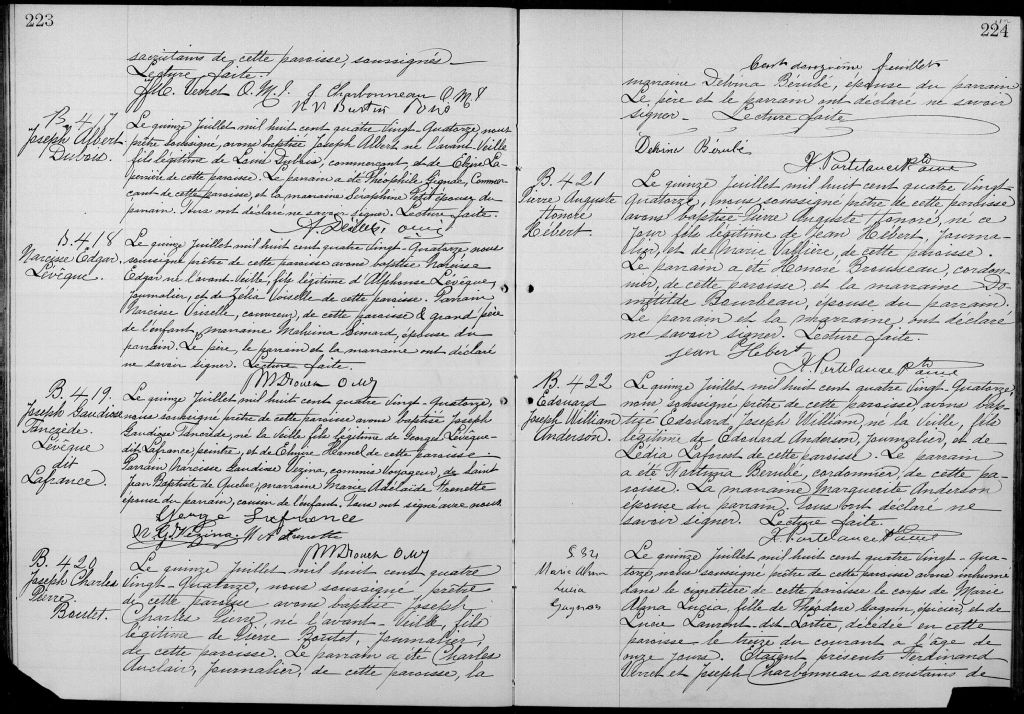 223
sacristains de cette paroisse, soussignés
Lecture faite.
J. Charbonneau O.M.I
B. 417
Joseph Albert
Dubois.
Le quinze Juillet mil huit cent quatre Vingt-Quatorze, nous
prêtre soussigné, avons baptisé Joseph Albert, né l'avant-Veille
fils légitime de Louis Dubois, commerçant, et de
de cette paroisse. Le parrain a été Théophile Commer-
cant de cette paroisse, et la marraine Séraphine Petit épouse du
parrain. Tous ont déclaré ne savoir signer. Lecture faite.
B. 418
Narcisse Edgar
Levêque.
Le quinze Juillet mil huit cent quatre Vingt-Quatorze nous
soussigné prêtre de cette paroisse avons baptisé Narcisse
Edgar né l'avant-Veille, fils légitime d'Alphonse Levêque,
journalier, et de Zélia Voiselle de cette paroisse. Parrain
Narcisse Viselle, couvreur, de cette paroisse & grand père
de l'enfant, marraine Malvina Simard, épouse du
parrain. Le père, le parrain et la marraine ont déclaré
ne savoir signer. Lecture faite.
B. 419
Joseph Gaudiose
Tancrède
Levêque
dit
Lafrance.
Le quinze Juillet mil huit cent quatre vingt-Quatorze,
nous soussigné prêtre de cette paroisse avons baptisé Joseph
Gaudiose Tancrède, né la Veille fils légitime de Georges Levêque
dit Lafrance, peintre, et de Elmire Hamel de cette paroisse.
Parrain Narcisse Gaudiose Vezina, commis Voyageur, de Saint
Jean Baptiste de Quebec, marraine Marie Adélaïde
épouse du parrain, cousin de l'enfant. Tous ont signé avec nous.
George Lafrance
N. G. Vezina
B. 420
Joseph Charles
Pierre
Boutet.
Le quinze Juillet mil huit cent quatre
Vingt-Quatorze, nous soussigné prêtre
de cette paroisse avons baptisé Joseph
Charles Pierre, né l'avant-Veille, fils
légitime de Pierre Boutet, journalier,
de cette paroisse. Le parrain a été Charles
Auclair, journalier, de cette paroisse, la
224
Cent douzième feuillet
marraine Delvina Bérubé, épouse du parrain
Le père et le parrain ont déclaré ne savoir
signer. Lecture faite
Delvina Bérubé
A. Portelance Ptre
B. 421
Pierre Auguste
Honoré
Hébert.
Le quinze Juillet mil huit cent quatre Vingt-
Quatorze, nous soussigné prêtre de cette paroisse
avons baptisé Pierre Auguste Honoré, né ce
jour fils légitime de Jean Hébert, journa-
lier, et de Marie Vallière, de cette paroisse.
Le parrain a été Honoré Brousseau, cordon-
nier, de cette paroisse et la marraine Do-
mitilde Bourbeau, épouse du parrain.
Le parrain et la marraine ont déclaré
ne savoir signer. Lecture faite.
Jean Hebert
A. Portelance Ptre
B. 422
Edouard
Joseph William
Anderson.
Le quinze Juillet mil huit cent quatre Vingt-Quatorze,
nous soussigné prêtre de cette paroisse, avons bap-
tisé Edouard Joseph William, né la Veille, fils
légitime de Edouard Anderson, journalier, et de
Lédia Laforest de cette paroisse. Le parrain
a été Bérubé, cordonnier, de cette pa-
roisse. La marraine Marguerite Anderson
épouse du parrain. Tous ont déclaré ne
savoir signer. Lecture faite.
A. Portelance Ptre
S 34
Marie Alma
Lucia
Gagnon
Le quinze Juillet mil huit cent quatre Vingt-Qua-
torze, nous soussigné prêtre de cette paroisse avons inhumé
dans le cimetière de cette paroisse le corps de Marie
Alma Lucia, fille de Théodore Gagnon, épicier, et de
Lucie Lamont dit Lortie, décédée en cette
paroisse le treize du courant a l'âge de
onze jours. Étaient présents Ferdinand
Verret et Joseph Charbonneau sacristains de